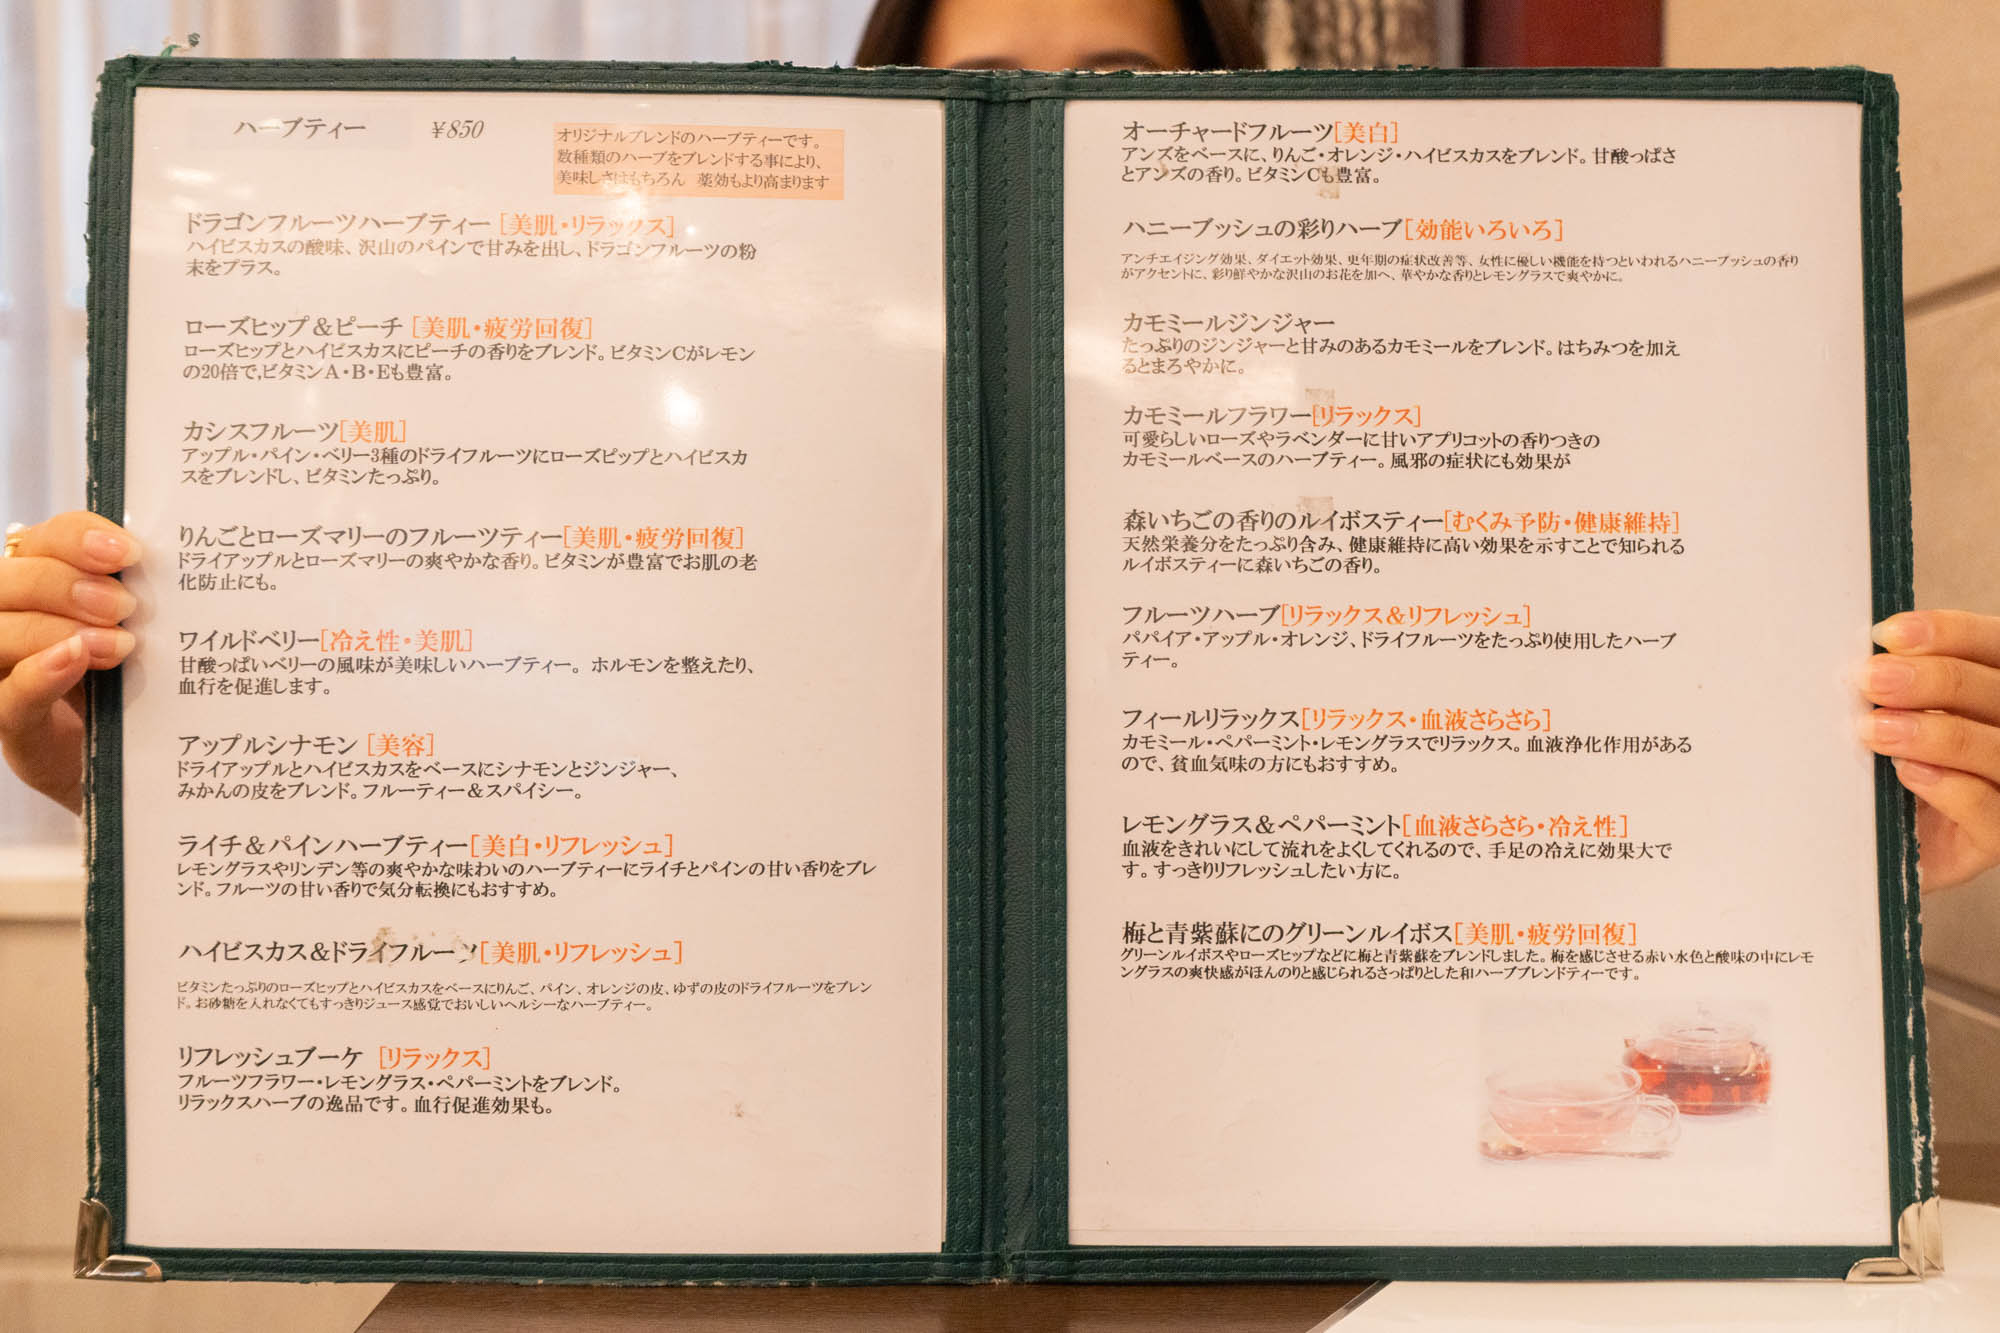 ハーブティー ￥850
オリジナルブレンドのハーブティーです。
数種類のハーブをブレンドする事により、
美味しさはもちろん 薬効もより高まります
ドラゴンフルーツハーブティー [美肌・リラックス]
ハイビスカスの酸味、沢山のパインで甘みを出し、ドラゴンフルーツの粉
末をプラス。
ローズヒップ＆ピーチ [美肌・疲労回復]
ローズヒップとハイビスカスにピーチの香りをブレンド。ビタミンCがレモン
の20倍で,ビタミンA・B・Eも豊富。
カシスフルーツ[美肌]
アップル・パイン・ベリー3種のドライフルーツにローズピップとハイビスカ
スをブレンドし、ビタミンたっぷり。
りんごとローズマリーのフルーツティー[美肌・疲労回復]
ドライアップルとローズマリーの爽やかな香り。ビタミンが豊富でお肌の老
化防止にも。
ワイルドベリー[冷え性・美肌]
甘酸っぱいベリーの風味が美味しいハーブティー。ホルモンを整えたり、
血行を促進します。
アップルシナモン [美容]
ドライアップルとハイビスカスをベースにシナモンとジンジャー、
みかんの皮をブレンド。フルーティー＆スパイシー。
ライチ＆パインハーブティー[美白・リフレッシュ]
レモングラスやリンデン等の爽やかな味わいのハーブティーにライチとパインの甘い香りをブレ
ンド。フルーツの甘い香りで気分転換にもおすすめ。
ハイビスカス＆ドライフルーツ[美肌・リフレッシュ]
ビタミンたっぷりのローズヒップとハイビスカスをベースにりんご、パイン、オレンジの皮、ゆずの皮のドライフルーツをブレン
ド。お砂糖を入れなくてもすっきりジュース感覚でおいしいヘルシーなハーブティー。
リフレッシュブーケ [リラックス]
フルーツフラワー・レモングラス・ペパーミントをブレンド。
リラックスハーブの逸品です。血行促進効果も。
オーチャードフルーツ[美白]
アンズをベースに、りんご・オレンジ・ハイビスカスをブレンド。甘酸っぱさ
とアンズの香り。ビタミンCも豊富。
ハニーブッシュの彩りハーブ[効能いろいろ]
アンチエイジング効果、ダイエット効果、更年期の症状改善等、女性に優しい機能を持つといわれるハニーブッシュの香り
がアクセントに、彩り鮮やかな沢山のお花を加へ、華やかな香りとレモングラスで爽やかに。
カモミールジンジャー
たっぷりのジンジャーと甘みのあるカモミールをブレンド。はちみつを加え
るとまろやかに。
カモミールフラワー[リラックス]
可愛らしいローズやラベンダーに甘いアプリコットの香りつきの
カモミールベースのハーブティー。風邪の症状にも効果が
森いちごの香りのルイボスティー[むくみ予防・健康維持]
天然栄養分をたっぷり含み、健康維持に高い効果を示すことで知られる
ルイボスティーに森いちごの香り。
フルーツハーブ[リラックス＆リフレッシュ]
パパイア・アップル・オレンジ、ドライフルーツをたっぷり使用したハーブ
ティー。
フィールリラックス[リラックス・血液さらさら]
カモミール・ペパーミント・レモングラスでリラックス。血液浄化作用がある
ので、貧血気味の方にもおすすめ。
レモングラス＆ペパーミント[血液さらさら・冷え性]
血液をきれいにして流れをよくしてくれるので、手足の冷えに効果大で
す。すっきりリフレッシュしたい方に。
梅と青紫蘇にのグリーンルイボス[美肌・疲労回復]
グリーンルイボスやローズヒップなどに梅と青紫蘇をブレンドしました。梅を感じさせる赤い水色と酸味の中にレモ
ングラスの爽快感がほんのりと感じられるさっぱりとした和ハーブブレンドティーです。